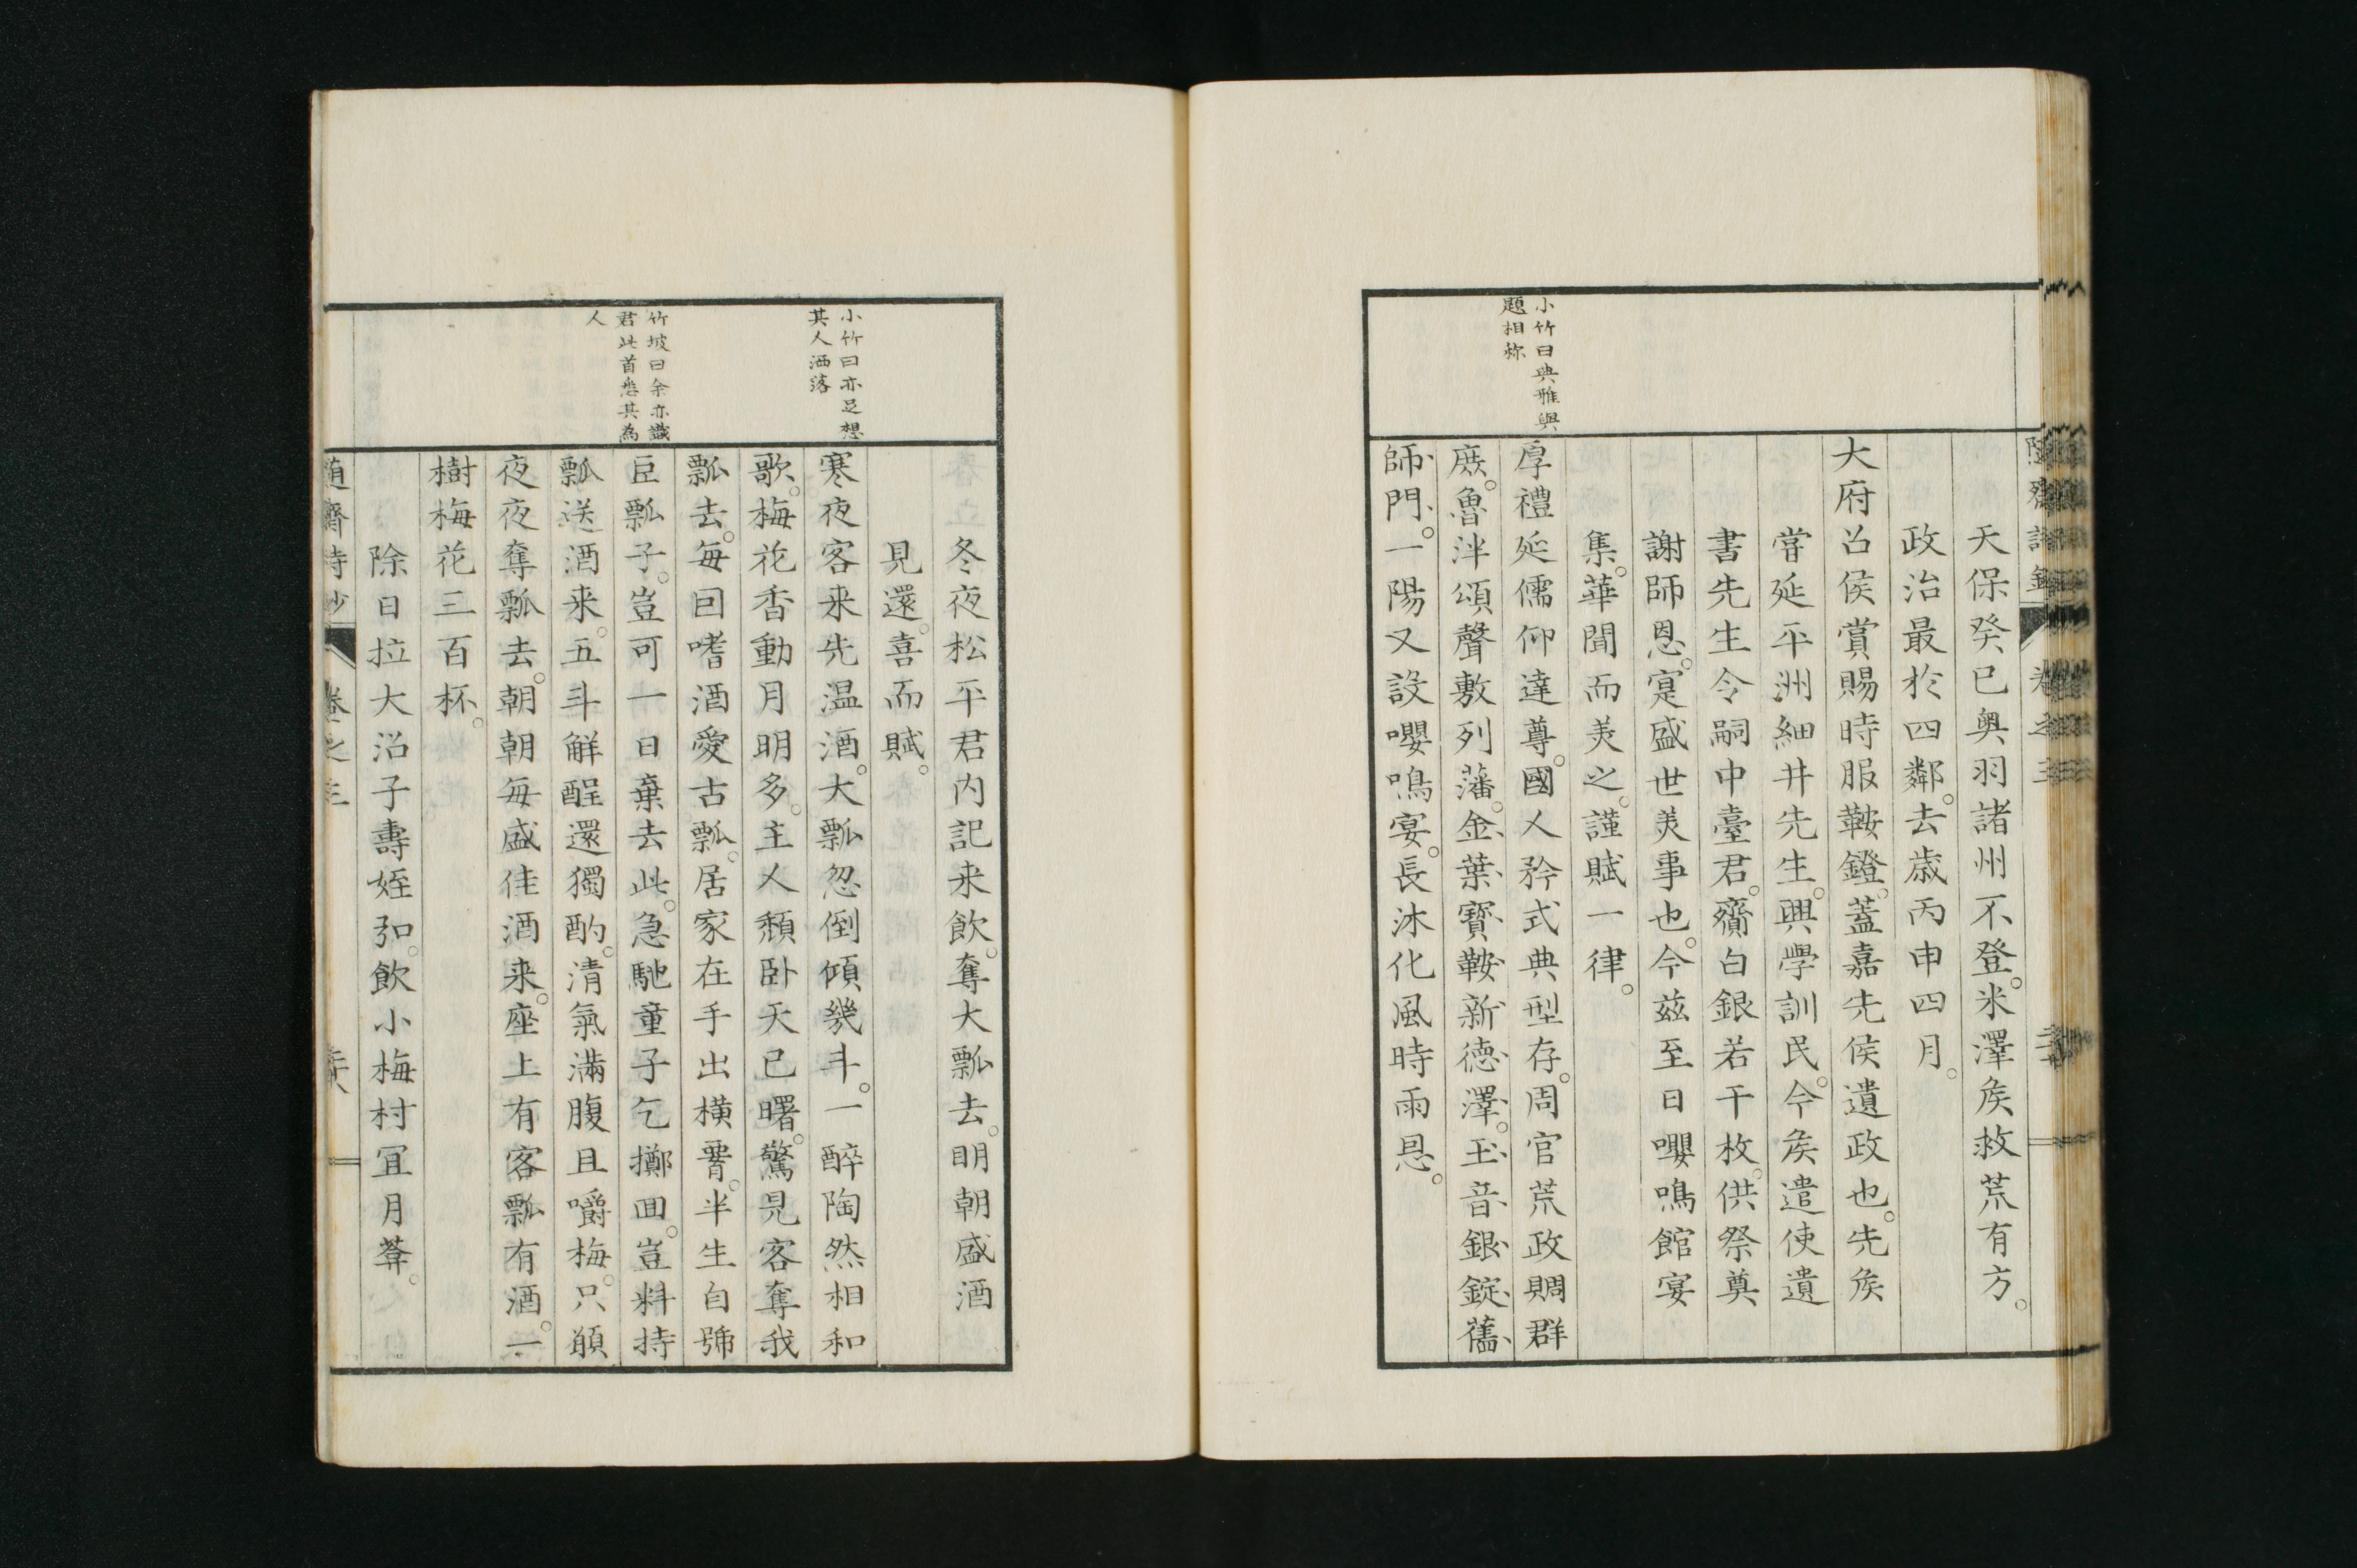 天保癸巳奥羽諸州不登。米澤矦救荒有方。
政治最於四鄰。去歳丙申四月。
大府召侯賞賜時服鞍鐙。蓋嘉先侯遺政也。先矦
甞延平洲細井先生。興學訓民。今矦遣使遺
書先生令嗣中臺君。齎白銀若干枚。供祭奠
謝師恩。寔盛世美事也。今茲至日嚶鳴館宴
集。華聞而美之。謹賦一律。
小竹曰典雅與
題相称
厚禮延儒仰達尊。國人矜式典型存。周官荒政賙群
庶。魯泮頌聲敷列藩。金葉寶鞍新德澤。玉音銀錠舊
師門。一陽又設嚶鳴宴。長沐化風時雨恩。
冬夜松平君内記来飲。奪大瓢去。明朝盛酒
見還。喜而賦。
小竹曰亦足想
其人洒落
寒夜客来先温酒。大瓢忽倒傾幾斗。一醉陶然相和
歌。梅花香動月明多。主人頽卧天已曙。驚見客奪我
瓢去。毎回嗜酒愛古瓢。居家在手出横腰。半生自號
竹坡曰余亦識
君此首悉其為
人
巨瓢子。豈可一日棄去此。急馳童子乞擲囬。豈料持
瓢送酒来。五斗解酲還獨酌。清氣滿腹且嚼梅。只願
夜夜奪瓢去。朝朝毎盛佳酒来。座上有客瓢有酒。一
樹梅花三百杯。
除日拉大沼子壽姪弘。飲小梅村冝月葊。
卷之三